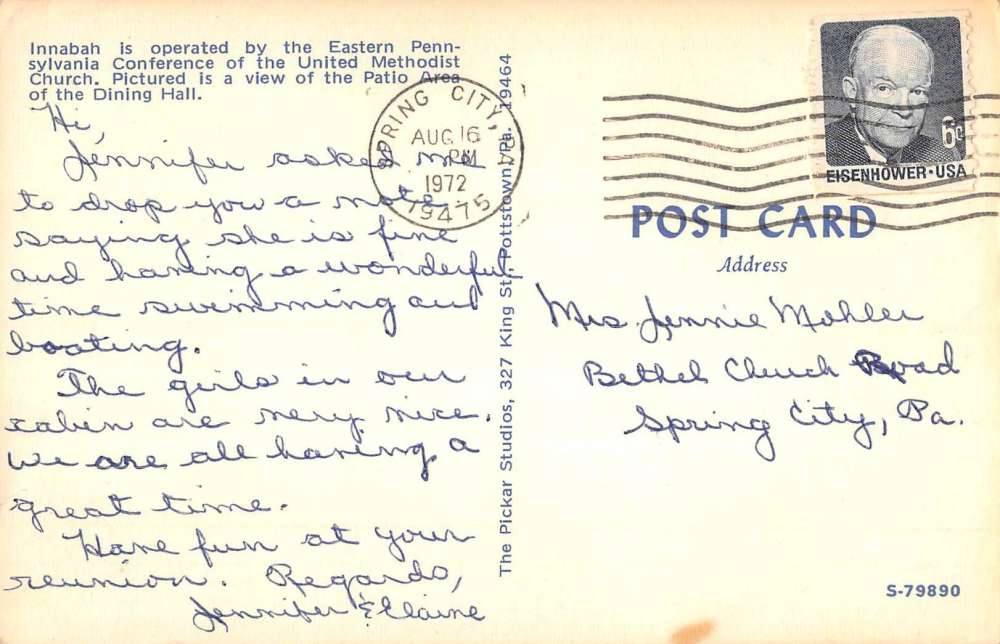 Innabah is operated by the Eastern Penn-
sylvania Conference of the United Methodist
Church. Pictured is a view of the Patio Area
of the Dining Hall.
Hi,
Jennifer asked me
to drop you a note
saying she is fine
and having a wonderful
time swimming and
boating.
The girls in our
cabin are very nice.
We are all having a
great time.
Have fun at your
reunion. Regards,
Jennifer & Elaine
The Pickar Studios, 327 King St., Pottstown, Pa. 19464
SPRING CITY, PA
AUG 16
PM
1972
19475
6c
EISENHOWER·USA
POST CARD
Address
Mrs. Jennie Mohler
Bethel Church Road
Spring City, Pa.
S-79890